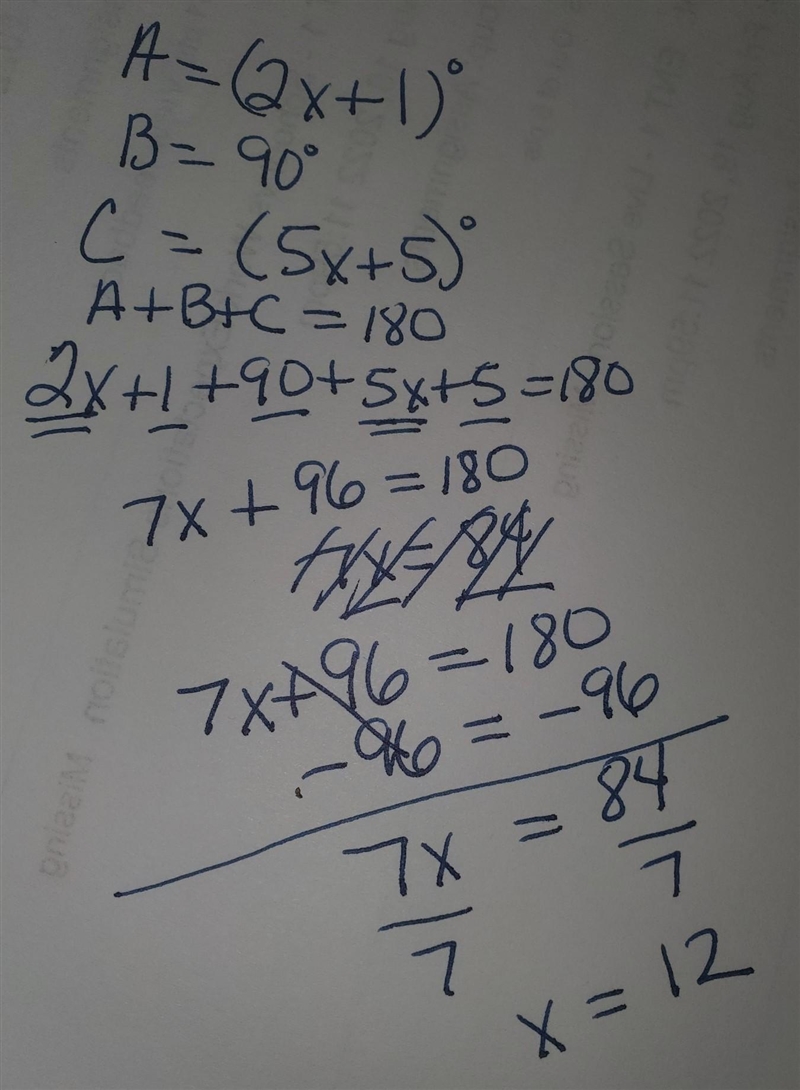 A = (2x+1)°
B = 90°
C = (5x+5)°
A+B+C = 180
2x+1+90+5x+5=180
7x + 96 = 180
7x = 84
7x+96 = 180
-96 = -96
7x/7 = 84/7
x = 12